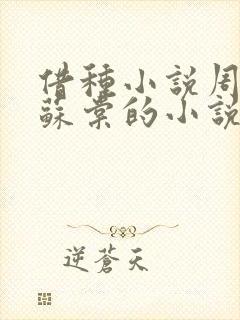 借種小說周
蘇棠的小說
逆蒼天